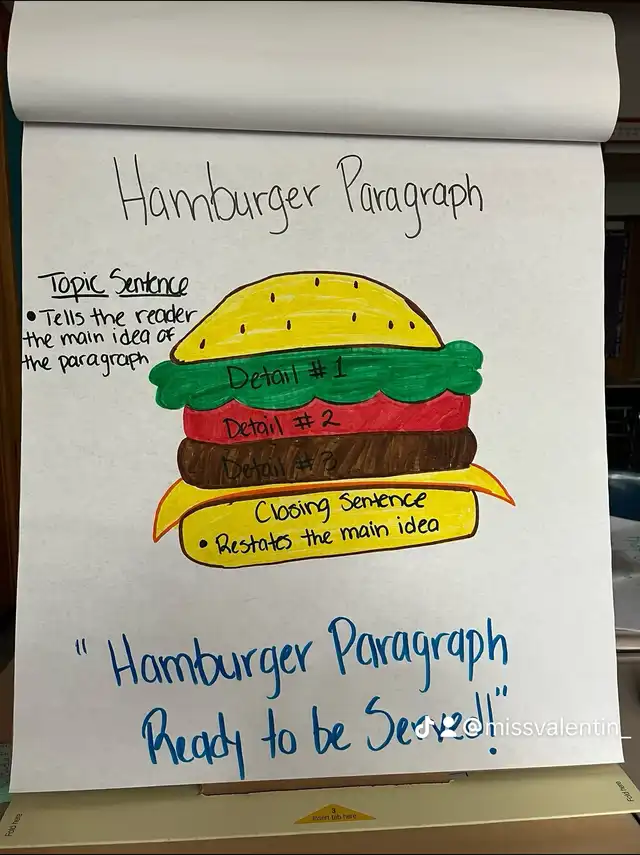 Hamburger Paragraph
Topic Sentence
• Tells the reader
the main idea of
the paragraph
Detail #1
Detail #2
Detail #3
Closing Sentence
• Restates the main idea
"Hamburger Paragraph
Ready to be Served!"
@missvalentin_
Fold here
Insert tab here
Fold here